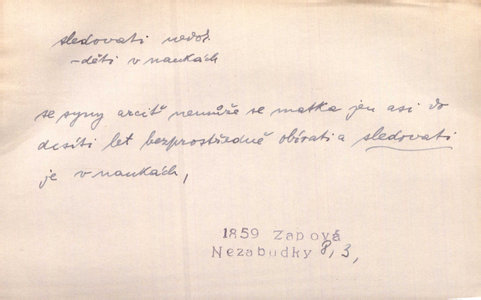 sledovati nedok
-děti v naukách
se syny arciť nemůže se matka jen asi do
desíti let bezprostředně obírati a sledovati
je v naukách,
1859 Zapová
Nezabudky 8, 3,